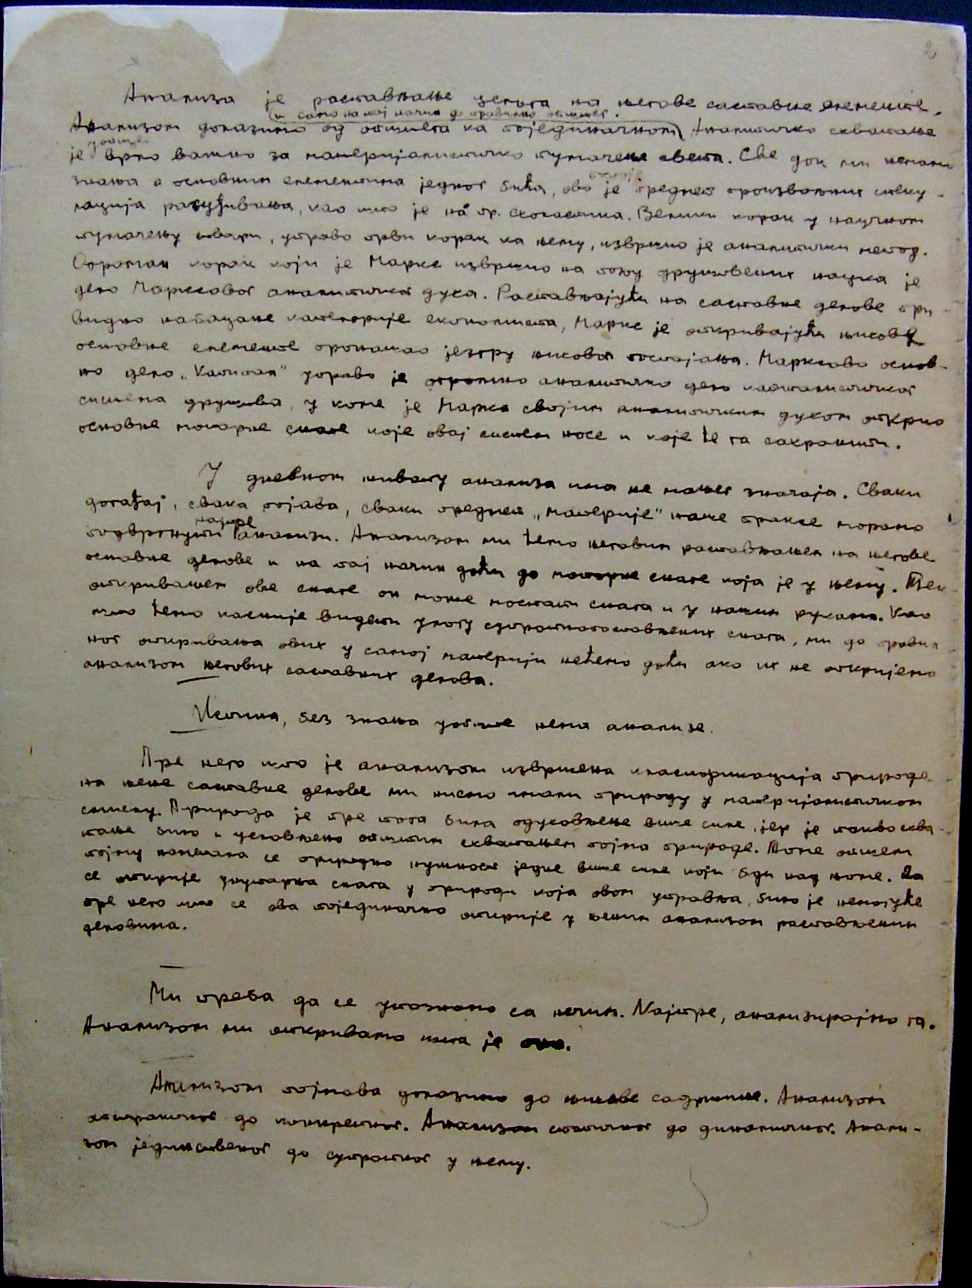 2
Анализа је растављање целога на његове саставне елементе.
(и само на тај начин до правилно општег.
Анализом долазимо од општега ка појединачном) Аналитичко схватање
је врло важно за материјалистичко тумачење света. Све док ми немамо
знања о основним елементима једног бића, ово је предмет произвољних спеку-
лација расуђивања, као што је на пр. схоластика. Велики корак у научном
тумачењу ствари, управо први корак ка њему, извршио је аналитички метод.
Огроман корак који је Маркс извршио на пољу друштвених наука је
дело Марксовог аналитичког духа. Растављајући на саставне делове при-
видно набацане категорије економиста, Маркс је откривајући њихове
основне елементе пронашао језгру њиховог постајања. Марксово основ-
но дело „Капитал" управо је огромно аналитичко дело капиталистичког
система друштва, у коме је Маркс својим аналитичким духом открио
основне моторне снаге које овај систем носе и које ће га сахранити.
У дневном животу анализа има не мањег значаја. Сваки
догађај, свака појава, сваки предмет „материје" наше праксе морамо
најпре
подвргнути анализи. Анализом ми ћемо његовим растављањем на његове
основне делове и на тај начин доћи до моторне снаге која је у њему. Тек
откривањем ове снаге он може постати снага и у нашим рукама. Као
што ћемо касније видети улогу супротностављених снага, ми до правил-
ног откривања ових у самој материји нећемо доћи ако их не откријемо
анализом његових саставних делова.
Истина, без знања уопште нема анализе.
Пре него што је анализом извршена класификација природе
на њене саставне делове ми нисмо имали природу у материјалистичком
смислу. Природа је пре тога била одуховљење више силе, јер је такво схва-
тање било и условљено општим схватањем појма природе. Томе општем
појму наметала се природно нужност једне више силе која бди над њоме. Да
се открије унутарња снага у природи која овом управља, било је немогуће
пре него што се ова појединачно открије у њеним анализом растављеним
деловима.
Ми треба да се упознамо са нечим. Најпре, анализирајмо га.
Анализом ми откривамо шта је оно.
Анализом појмова долазимо до њихове садржине. Анализом
апстрактног до конкретног. Анализом статичног до динамичног. Анали-
зом јединственог до супротног у њему.